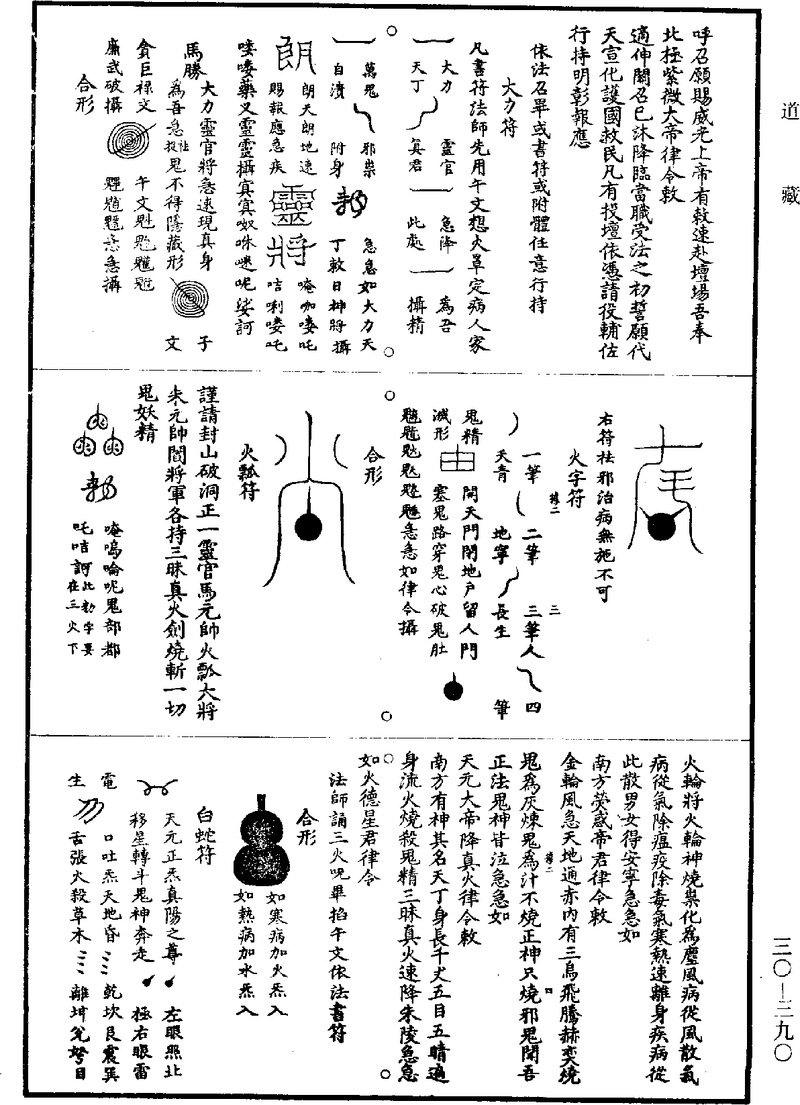 道藏
呼召願賜威光上帝有敕速赴壇場吾奉
北極紫微大帝律令敕
適伸關召已沐降臨當職受法之初誓願代
天宣化護國救民凡有投壇依憑請役輔佐
行持明彰報應
依法召畢或書符或附體任意行持
大力符
凡書符法師先用午文想火罩定病人家
大力 靈官 急降 為吾
天丁 真君 此處 攝精
萬鬼 邪祟 急急如大力天
自潰 附身 丁敕日神將攝
朗天朗地速 唵咖嘍吒
賜報應急疾 咭唎嘍吒
嘍嘍藥叉靈靈攝寞寞奴咮嚈呢娑訶
大力靈官將急速現真身 子
馬勝
為吾急投社鬼不得隱藏形 文
貪巨祿文 午文
廉武破攝
合形
右符祛邪治病無施不可
火字符
一筆 二筆 三筆人 四
天青 地寧 長生 筆
鬼精 開天門閉地戶留人門
滅形 塞鬼路穿鬼心破鬼肚
急急如律令攝
合形
火瓢符
謹請封山破洞正一靈官馬元帥火瓢大將
朱元帥閻將軍各持三昧真火劍燒斬一切
鬼妖精
唵嗚唥呢鬼部都
吒咭訶此勑字要在三火下
火輪將火輪神燒祟化為塵風病從風散氣
病從氣除瘟疫除毒氣寒熱速離身疾病從
此散男女得安寧急急如
南方熒惑帝君律令敕
金輪風急天地通赤內有三鳥飛騰赫奕燒
鬼為灰煉鬼為汁不燒正神只燒邪鬼聞吾
正法鬼神皆泣急急如
天元大帝降真火律令敕
南方有神其名天丁身長千丈五目五睛遍
身流火燒殺鬼精三昧真火速降朱陵急急
如火德星君律令
法師誦三火呪畢掐午文依法書符
合形
如寒病加火炁入
如熱病加水炁入
白蛇符
天元正炁真陽之尊 左眼照北
移星轉斗鬼神奔走 極右眼雷
電 口吐炁天地昏 乾坎艮震巽
生 舌張火殺草木 離坤兌努目
三〇—三九〇